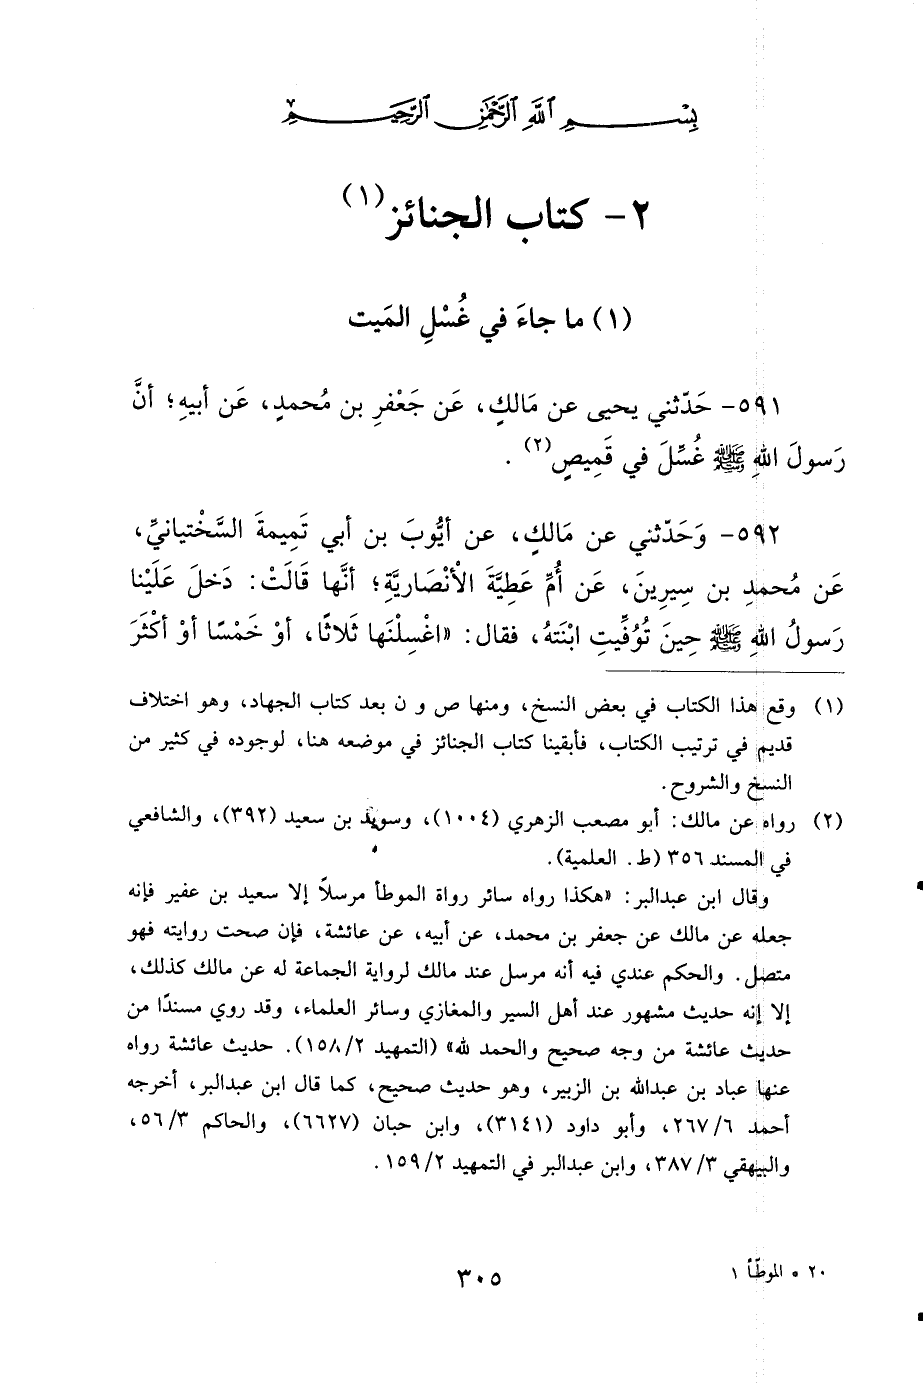 بِسْمِ اللَّهِ الرَّحْمَٰنِ الرَّحِيمِ
٢- كتاب الجنائز(١)
(١) ما جاءَ في غُسْلِ المَيت
٥٩١- حَدّثني يحيى عن مَالكٍ، عَن جَعْفرِ بن مُحمدٍ، عَن أبيهِ؛ أنَّ
رَسولَ اللهِ ﷺ غُسِّلَ في قَمِيصٍ(٢).
٥٩٢- وَحَدّثني عن مَالكٍ، عن أيُّوبَ بن أبي تَمِيمةَ السَّخْتيانيِّ،
عَن مُحمدِ بن سِيرِينَ، عَن أُمِّ عَطِيَّةَ الأنْصَاريَّةِ؛ أنَّها قَالَتْ: دَخلَ عَلَيْنا
رَسولُ اللهِ ﷺ حِينَ تُوُفِّيَتِ ابْنَتهُ، فقال: «اغْسِلْنَها ثَلاثًا، أوْ خَمْسًا أوْ أكثَرَ
(١) وقع هذا الكتاب في بعض النسخ، ومنها ص و ن بعد كتاب الجهاد، وهو اختلاف
قديم في ترتيب الكتاب، فأبقينا كتاب الجنائز في موضعه هنا، لوجوده في كثير من
النسخ والشروح.
(٢) رواه عن مالك: أبو مصعب الزهري (١٠٠٤)، وسويد بن سعيد (٣٩٢)، والشافعي
في المسند ٣٥٦ (ط. العلمية).
وقال ابن عبدالبر: «هكذا رواه سائر رواة الموطأ مرسلاً إلا سعيد بن عفير فإنه
جعله عن مالك عن جعفر بن محمد، عن أبيه، عن عائشة، فإن صحت روايته فهو
متصل. والحكم عندي فيه أنه مرسل عند مالك لرواية الجماعة له عن مالك كذلك،
إلا إنه حديث مشهور عند أهل السير والمغازي وسائر العلماء، وقد روي مسندًا من
حديث عائشة من وجه صحيح والحمد لله» (التمهيد ٢/ ١٥٨). حديث عائشة رواه
عنها عباد بن عبدالله بن الزبير، وهو حديث صحيح، كما قال ابن عبدالبر، أخرجه
أحمد ٦/ ٢٦٧، وأبو داود (٣١٤١)، وابن حبان (٦٦٢٧)، والحاكم ٣/ ٥٦،
والبيهقي ٣/ ٣٨٧، وابن عبدالبر في التمهيد ٢/ ١٥٩.
٢٠ * الموطّأ ١
٣٠٥